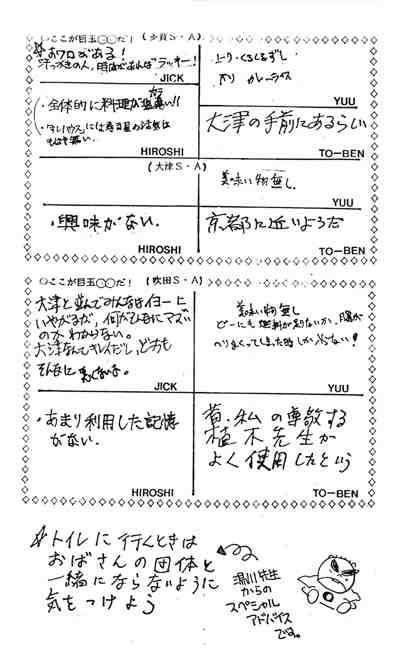 ○ここが目玉○○だ！(多賀S・A)
☆おフロがある！
汗っかきの人、
ラッキー！
JICK
上り・くるくるずし
下り カレーライス
YUU
・全体的に料理が塩辛い!!
HIROSHI
大津の手前にあるらしい
TO-BEN
(大津S・A)
美味い物無し.
YUU
・興味がない.
HIROSHI
京都に近いようだ
TO-BEN
○ここが目玉○○だ！【吹田S・A】
大津と並んでみんなはイヨーに
いやがるが、何がそんなにマズい
のか、わからない。
大津なんてキレイだし、どちらも
そんなに
JICK
美味い物無し
YUU
・あまり利用した記憶
がない.
HIROSHI
昔・私の尊敬する
植木先生が
よく使用したという
TO-BEN
☆トイレに行くときは
おばさんの団体と
一緒にならないように
気をつけよう
湯川先生
からの
スペシャル
アドバイス
です。